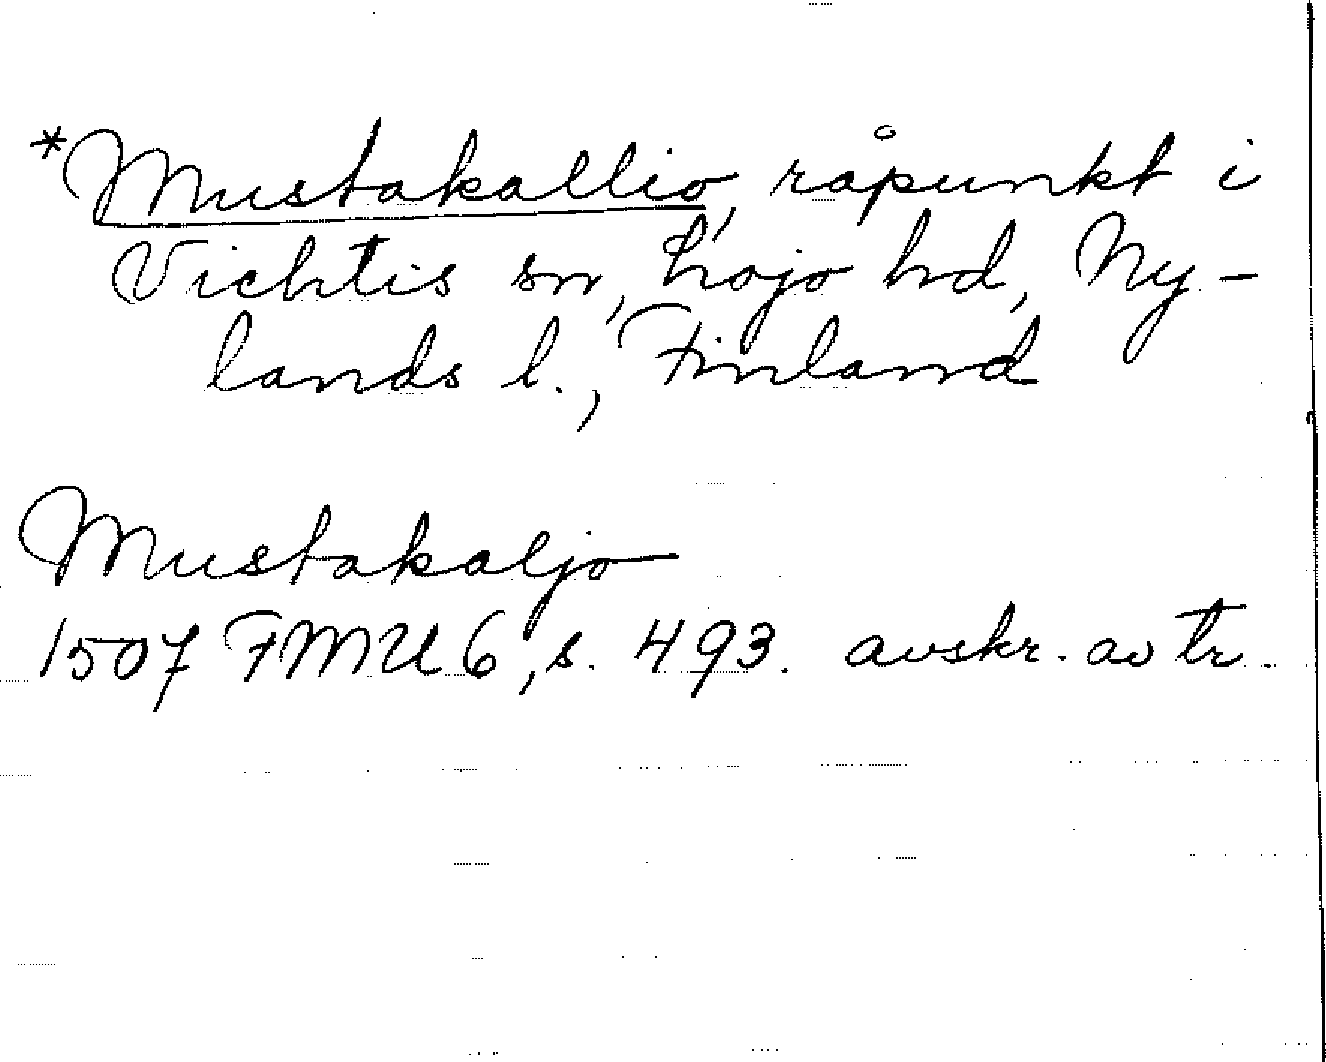 *Mustakallio, råpunkt i
Vichtis sn, Lojo hd, Ny-
lands l., Finland
Mustakaljo
1507 FMU 6, s. 493. avskr. av tr.